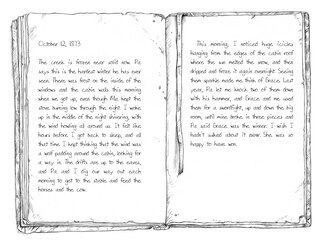 October 12, 1873
The creek is frozen over solid now. Pa
says this is the hardest winter he has ever
seen. There was frost on the inside of the
windows and the cabin walls this morning
when we got up, even though Ma kept the
stove burning low through the night. I woke
up in the middle of the night shivering, with
the wind howling all around us. It felt like
hours before I got back to sleep, and all
that time I kept thinking that the wind was
a wolf padding around the cabin, looking for
a way in. The drifts are up to the eaves,
and Pa and I dig our way out each
morning to get to the stable and feed the
horses and the cow.
This morning, I noticed huge icicles
hanging from the edges of the cabin roof
where the sun melted the snow, and then
dripped and froze it again overnight. Seeing
them sparkle made me think of Grace. Last
year, Pa let me knock two of them down
with his hammer, and Grace and me used
them for a swordfight, up and down the big
room, until mine broke in three pieces and
Pa said Grace was the winner. I wish I
hadn't sulked about it now. She was so
happy to have won.